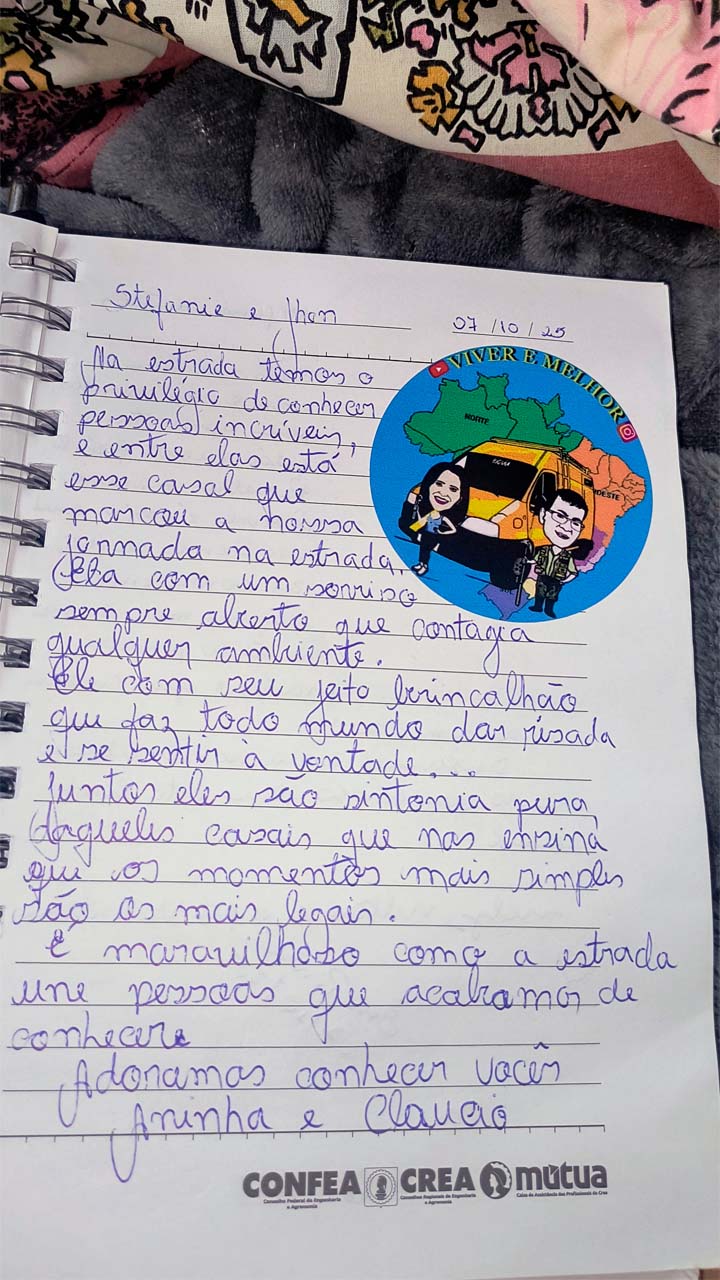 Stefanie e Jhon
07/10/25
VIVER E MELHOR
Na estrada temos o
privilégio de conhecer
pessoas incríveis,
e entre elas está
esse casal que
marcou a nossa
jornada na estrada.
Ela com um sorriso
sempre aberto que contagia
qualquer ambiente.
Ele com seu jeito brincalhão
que faz todo mundo dar risada
e se sentir à vontade...
Juntos eles são sintonia pura,
daqueles casais que nos ensina
que os momentos mais simples
são os mais legais.
É maravilhoso como a estrada
une pessoas que acabamos de
conhecer.
Adoramos conhecer vocês
Aninha e Claucio
NORTE
CONFEA
Conselho Federal de Engenharia
e Agronomia
CREA
Conselhos Regionais de Engenharia
e Agronomia
mútua
Caixa de Assistência dos Profissionais do Crea